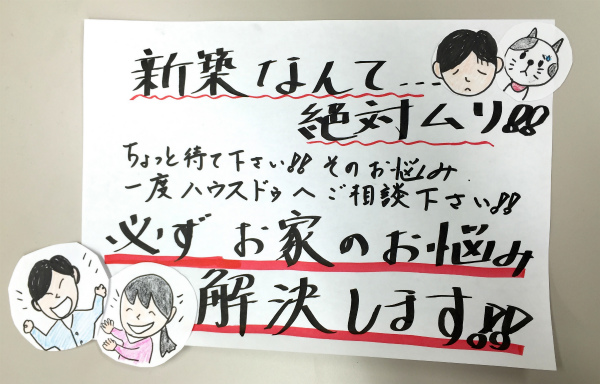 新築なんて...
絶対ムリ!!
ちょっと待て下さい!! そのお悩み
一度ハウスドゥへご相談下さい!!
必ずお家のお悩み
解決します!!